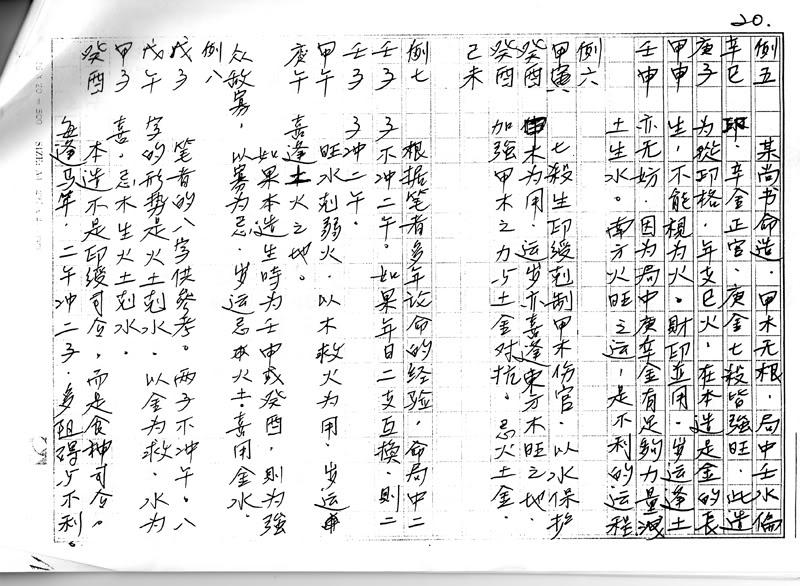 20.
例五
辛巳 某尚书命造. 甲木无根. 局中壬水偏
庚子 印. 辛金正官. 庚金七殺皆強旺. 此造
甲申 为從印格. 年支巳火. 在本造是金的長
壬申 生, 不能視为火. 財印並用. 岁运逢土
亦无妨. 因为局中庚辛金有足夠力量洩
土生水. 南方火旺之运, 是不利的运程
例六
甲寅 七殺生印綬剋制甲木伤官. 以水保护
癸酉 甲木为用. 运岁亦喜逢東方木旺之地.
癸酉 加強甲木之力与土金对抗. 忌火土金.
己未
例七 根据笔者多年论命的经验. 命局中二
壬子 子不冲二午. 如果年日二支互换. 則二
壬子 子冲二午.
甲午 旺水剋弱火. 以木救火为用. 岁运
庚午 喜逢土火之地.
如果本造生時为壬申或癸酉, 則为強
众敌寡. 以寡为忌. 岁运忌木火土. 喜用金水.
例八
戊子 笔者的八字供參考. 两子不冲午. 八
戊午 字的形势是火土剋水. 以金为救. 水为
甲子 喜. 忌木生火土剋水.
癸酉 本造不是印綬司令, 而是食神司令.
每逢马年. 二午冲二子. 多阻碍与不利